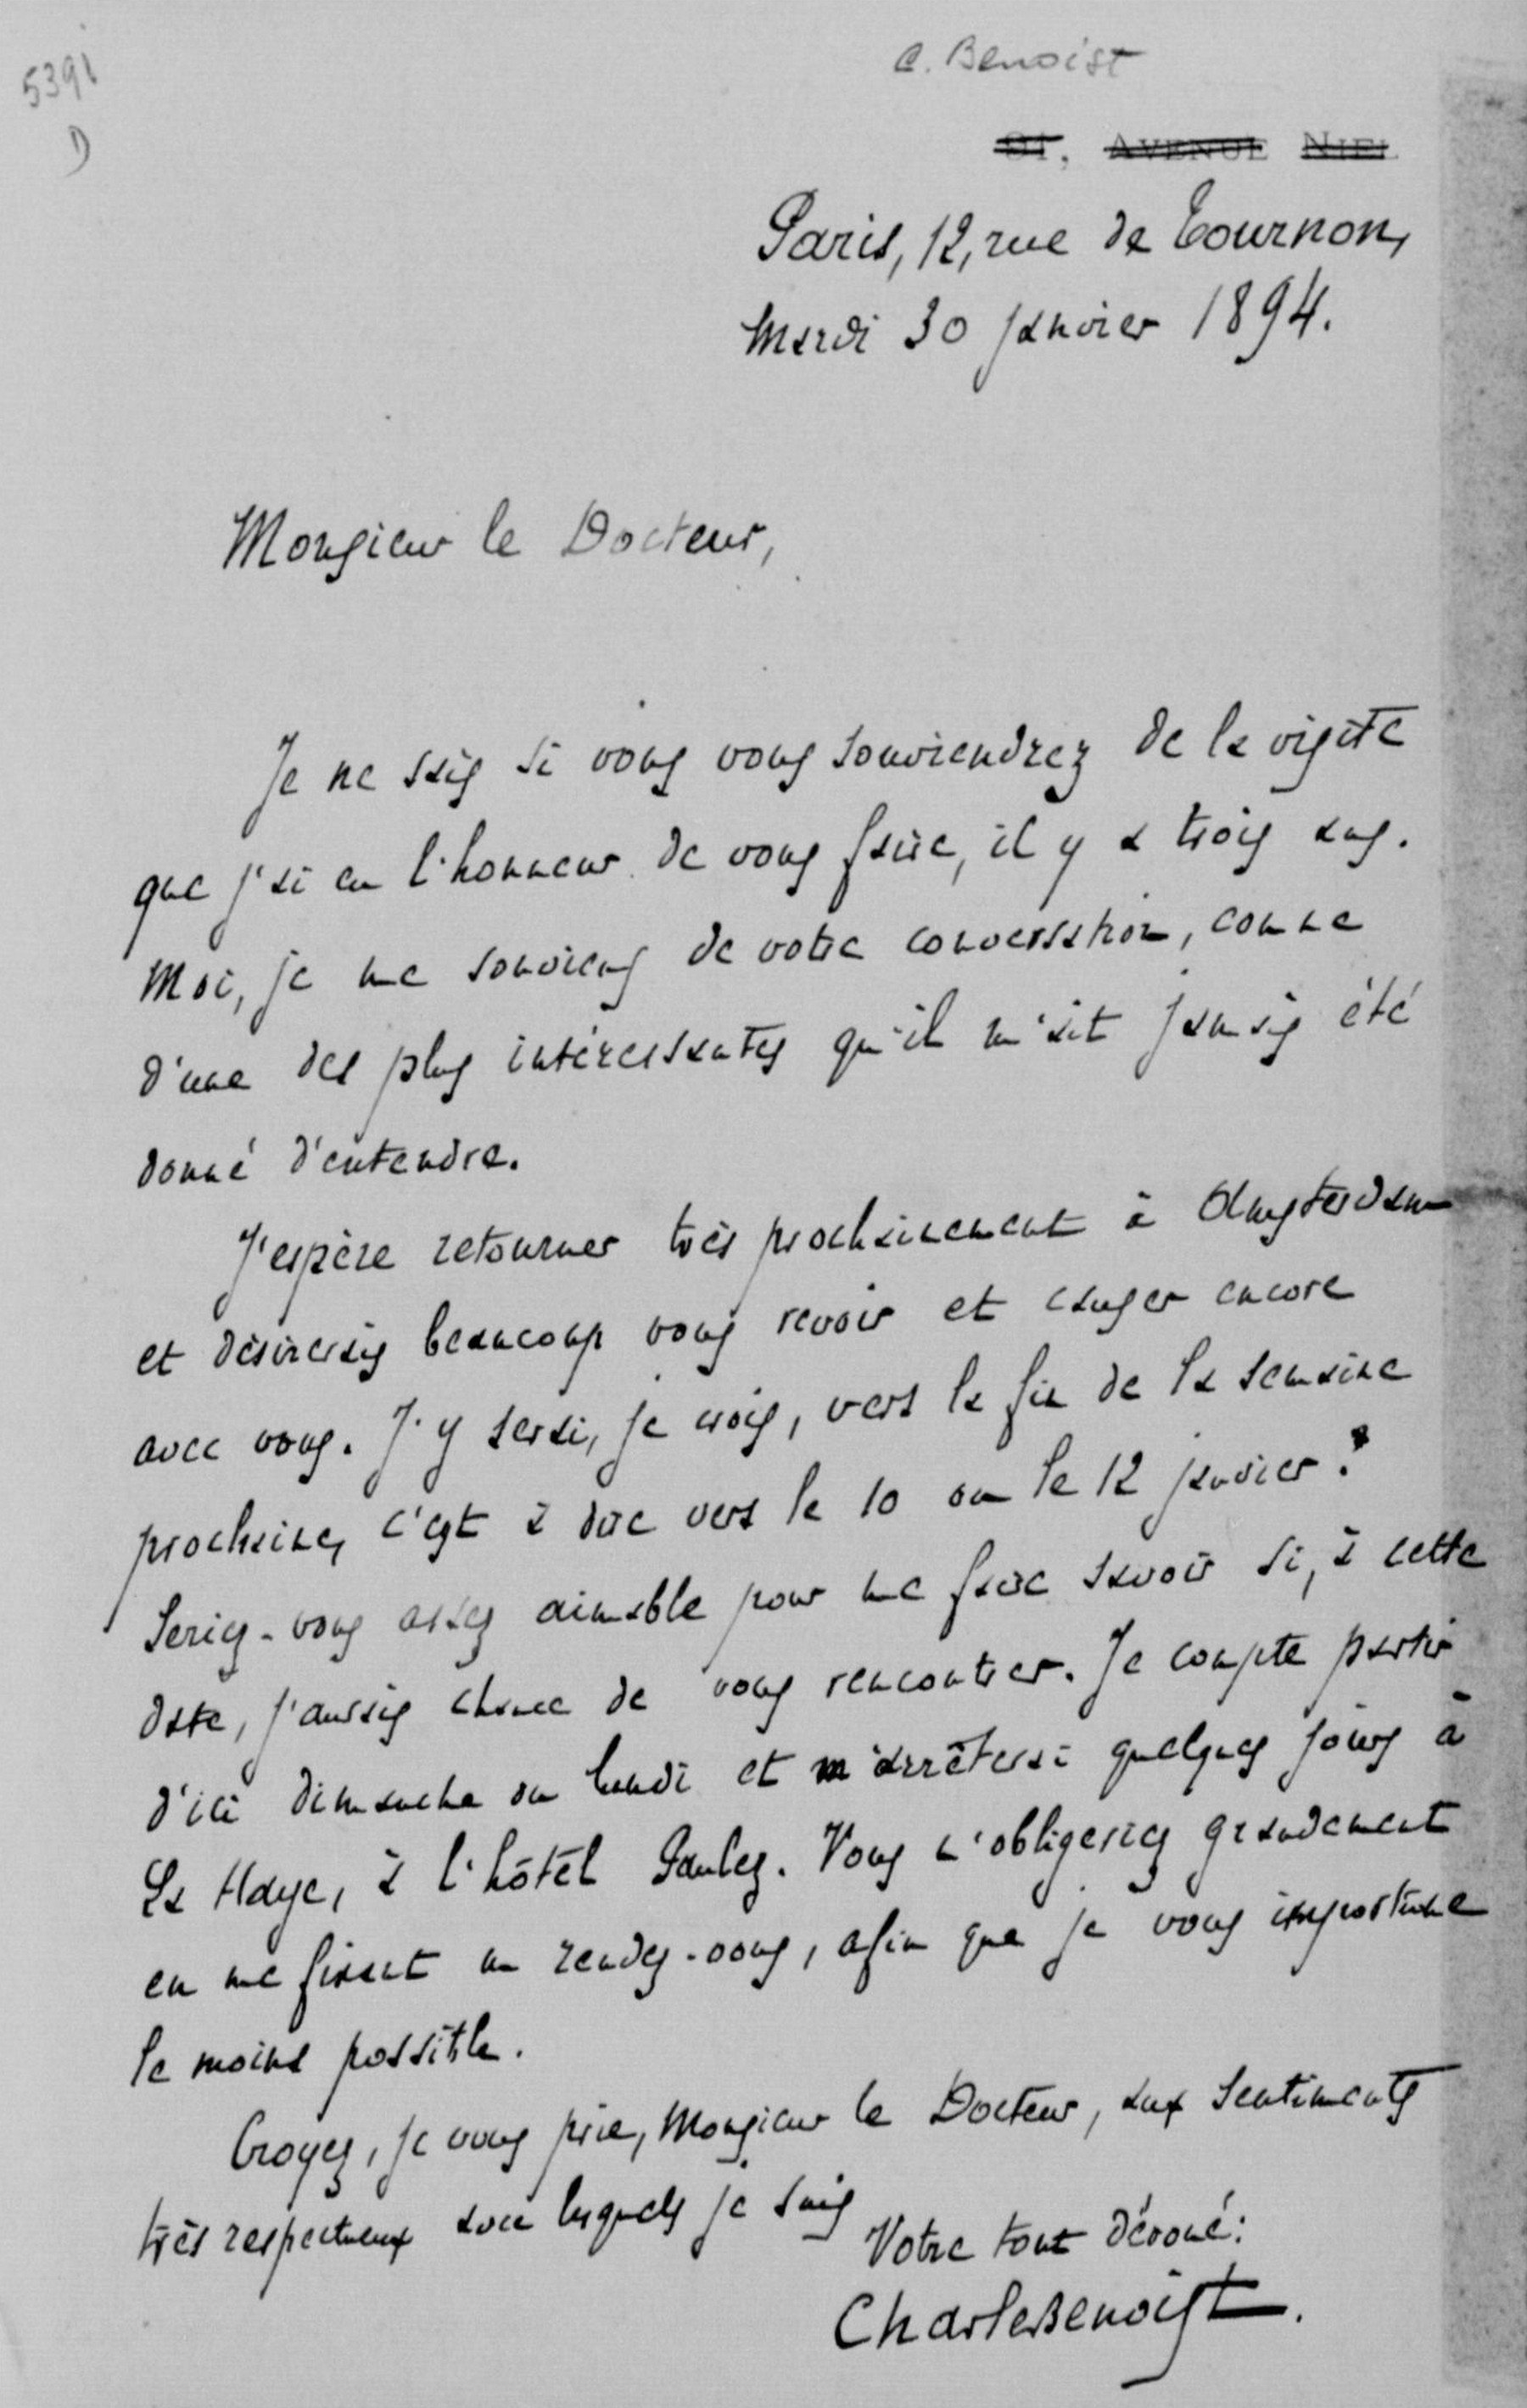 5391
D
C. Benoist
91, AVENUE NIEL
Paris, 12, rue de Tournon,
Mardi 30 janvier 1894.
Monsieur le Docteur,
Je ne sais si vous vous souviendrez de la visite
que j'ai eu l'honneur de vous faire, il y a trois ans.
Moi, je me souviens de votre conversation, comme
d'une des plus intéressantes qu'il m'ait jamais été
donné d'entendre.
J'espère retourner très prochainement à Amsterdam
et désirerais beaucoup vous revoir et causer encore
avec vous. J'y serai, je crois, vers la fin de la semaine
prochaine, c'est à dire vers le 10 ou le 12 janvier.
Seriez-vous assez aimable pour me faire savoir si, à cette
date, j'aurais chance de vous rencontrer. Je compte partir
d'ici dimanche ou lundi et m'arrêterai quelques jours à
La Haye, à l'hôtel Paulez. Vous m'obligeriez grandement
en me fixant un rendez-vous, afin que je vous importune
le moins possible.
Croyez, je vous prie, Monsieur le Docteur, aux sentiments
très respectueux avec lesquels je suis
Votre tout dévoué:
Charles Benoist.